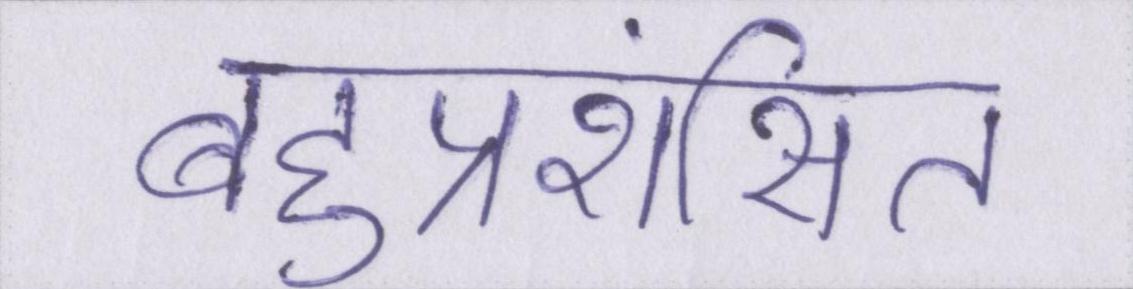 बहुप्रशंसिंत